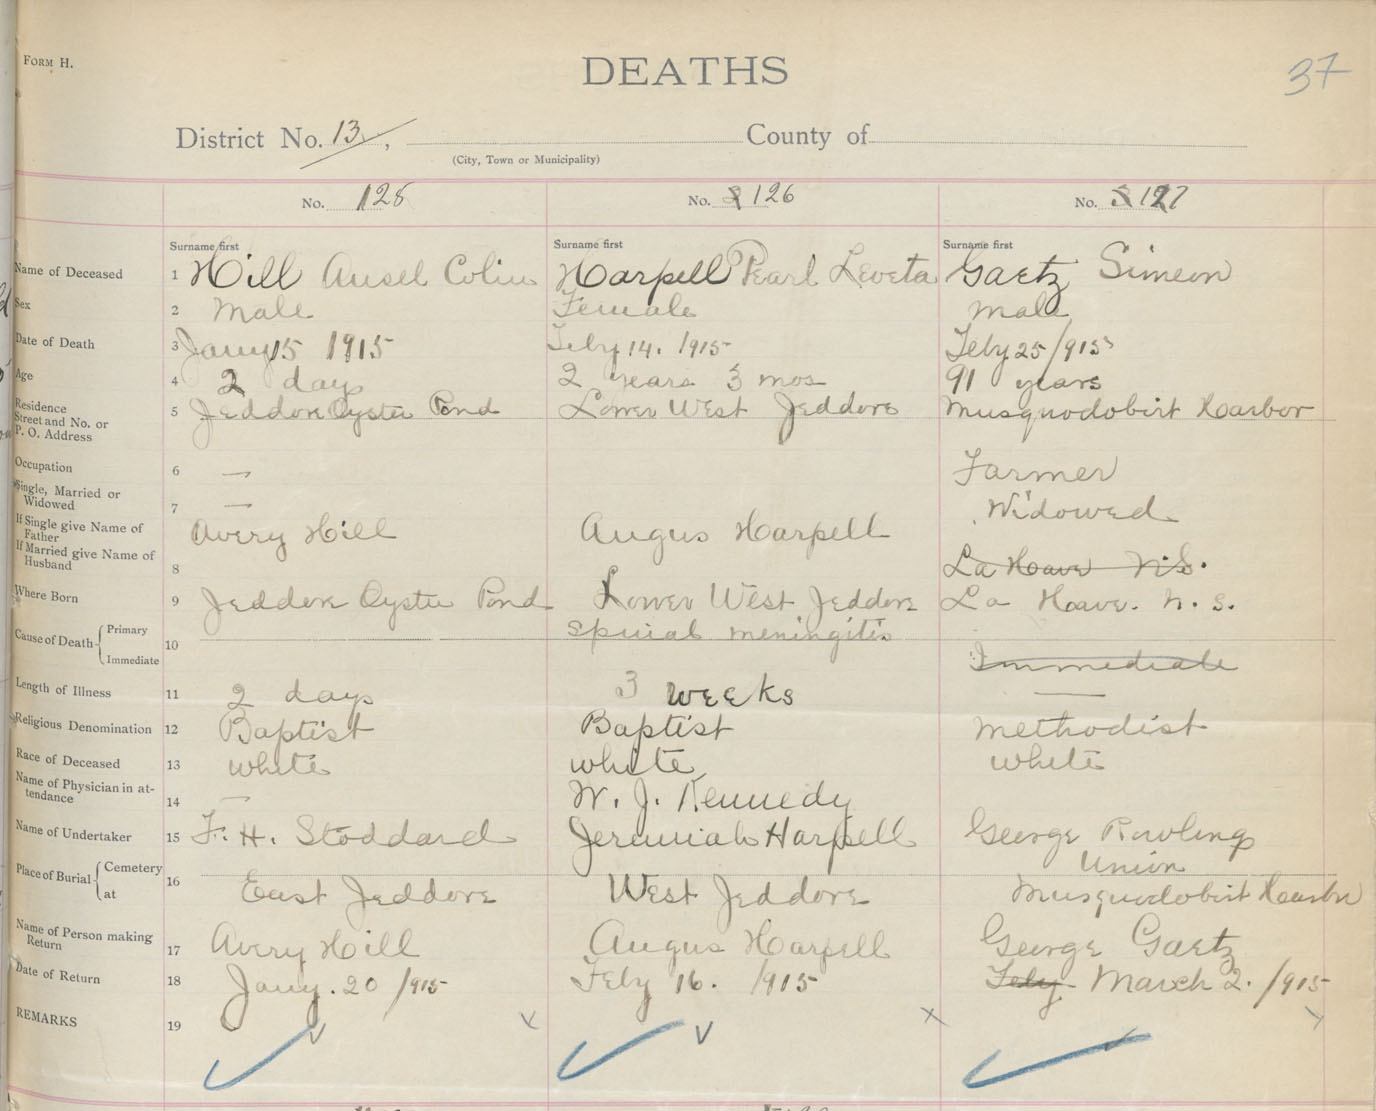 FORM H.
DEATHS
37
District No. 13, County of
(City, Town or Municipality)
No. 125 No. 126 No. 127
Surname first Surname first Surname first
Name of Deceased 1 Hill Ansel Colin Harpell Pearl Leveta Gaetz Simeon
Sex 2 Male Female male
Date of Death 3 Jany 15 1915 Feby 14. 1915 Feby 25/915
Age 4 2 days 2 years 3 mos 91 years
Residence Street and No. or P. O. Address 5 Jeddore Oyster Pond Lower West Jeddore Musquodobirt Harbor
Occupation 6 — Farmer
Single, Married or Widowed 7 — Widowed
If Single give Name of Father
If Married give Name of Husband 8 Avery Hill Angus Harpell La Have N.S.
Where Born 9 Jeddore Oyster Pond Lower West Jeddore La Have. N. S.
Cause of Death { Primary Immediate 10 spinal meningitis Immediate
Length of Illness 11 2 days 3 weeks —
Religious Denomination 12 Baptist Baptist methodist
Race of Deceased 13 white white white
Name of Physician in attendance 14 — W. J. Kennedy
Name of Undertaker 15 F. H. Stoddard Jeremiah Harpell George Rowlings
Place of Burial { Cemetery at 16 East Jeddore West Jeddore Union Musquodobirt Harbor
Name of Person making Return 17 Avery Hill Angus Harpell George Gaetz
Date of Return 18 Jany. 20/915 Feby 16. 1915 Feby March 2./915
REMARKS 19